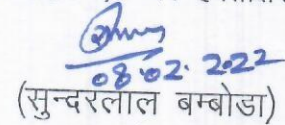 08.02.2022
(सुन्दरलाल बम्बोडा)